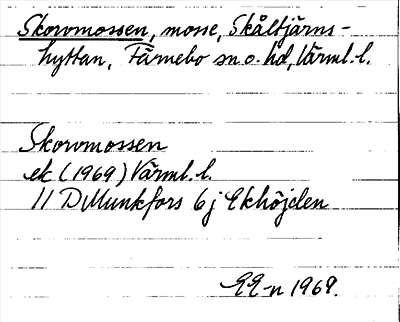 Skorvmossen, mosse, Skåltjärns-
hyttan, Färnebo sn o. hd, Värml. l.
Skorvmossen
ek (1969) Värml. l.
11 D Munkfors 6 j Ekhöjden
EE-n 1969.